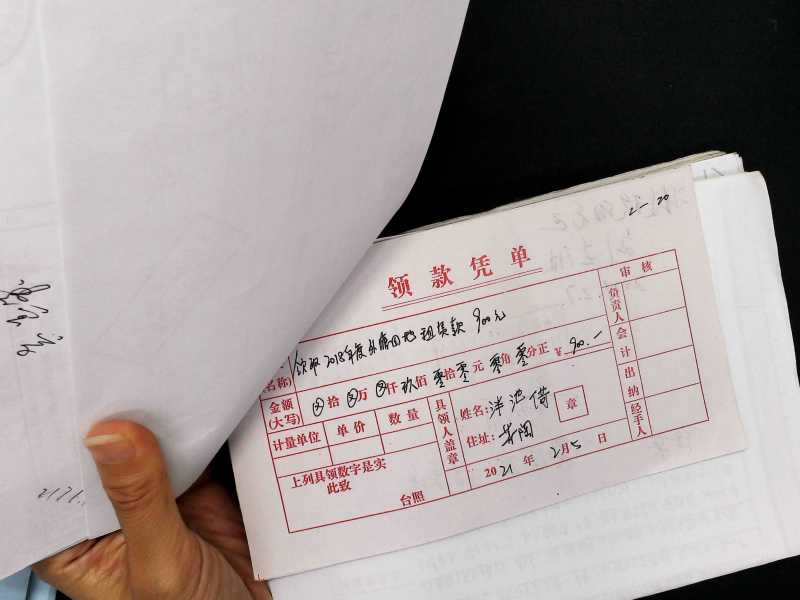 2-20
领款凭单
审核
领取2018年度 田地租赁款 900元
名称)
负责人
金额(大写) ⊗拾⊗万⊗仟玖佰零拾零元零角零分正 ¥ 900.-
会计
计量单位 单价 数量
具领人盖章
姓名:洋池
章
出纳
住址:
经手人
上列具领数字是实
此致
台照
2021年2月5日